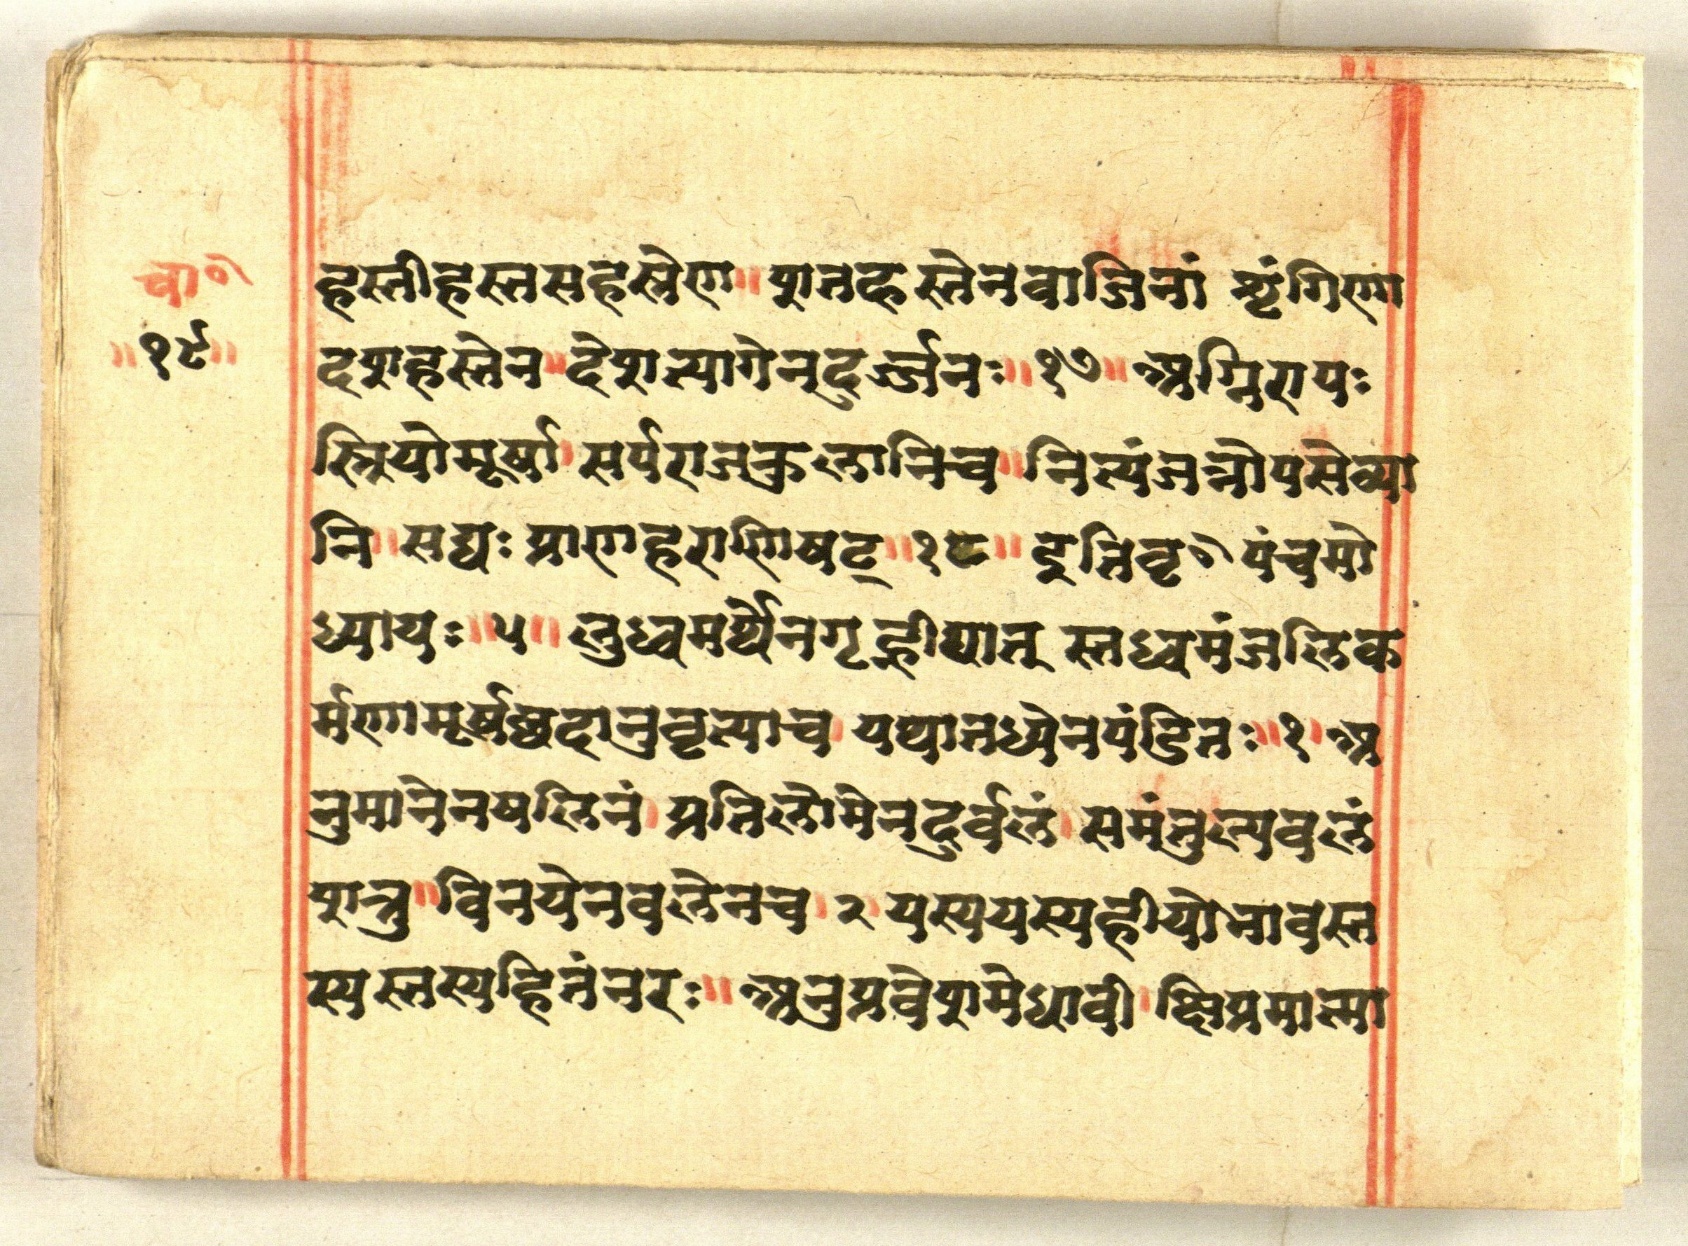 चा॰
॥१९॥
हस्तीहस्तसहस्रेण॥ शतहस्तेनवाजिनां शृंगिणा
दशहस्तेन॥ देशत्यागेनदुर्ज्जनः॥१७॥ अग्निरापः
स्त्रियोमूर्षा। सर्पराजकुलानिच॥ नित्यंजत्नोपसेव्या
नि॥ सद्यः प्राणहराणिषट्॥१८॥ इतिवृ॰ पंचमो
ध्यायः॥५॥ लुध्वमर्थ्येनगृह्णीयात् स्तध्वमंजलिक
र्मणामूर्षष्छदानुवृत्याच। यथातथ्येनपंडितः॥१। अ
नुमानेनषलिनं। प्रतिलोमेनदुर्वलं। समंतुल्यवलं
शत्रु॥ विनयेनवलेनच।२। यस्ययस्यहीयोभावस्त
स्यस्तस्यहितंनरः॥ अनुप्रवेशमेधावी। क्षिप्रमात्मा